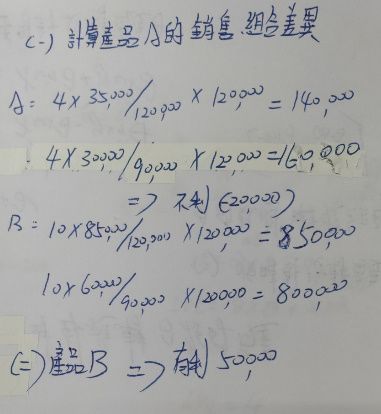 (一) 計算產品A的銷售組合差異
A: 4 × 35,000/120,000 × 120,000 = 140,000
4 × 30,000/90,000 × 120,000 = 160,000
=> 不利 (20,000)
B: 10 × 85,000/120,000 × 120,000 = 850,000
10 × 60,000/90,000 × 120,000 = 800,000
(二) 產品B => 有利 50,000